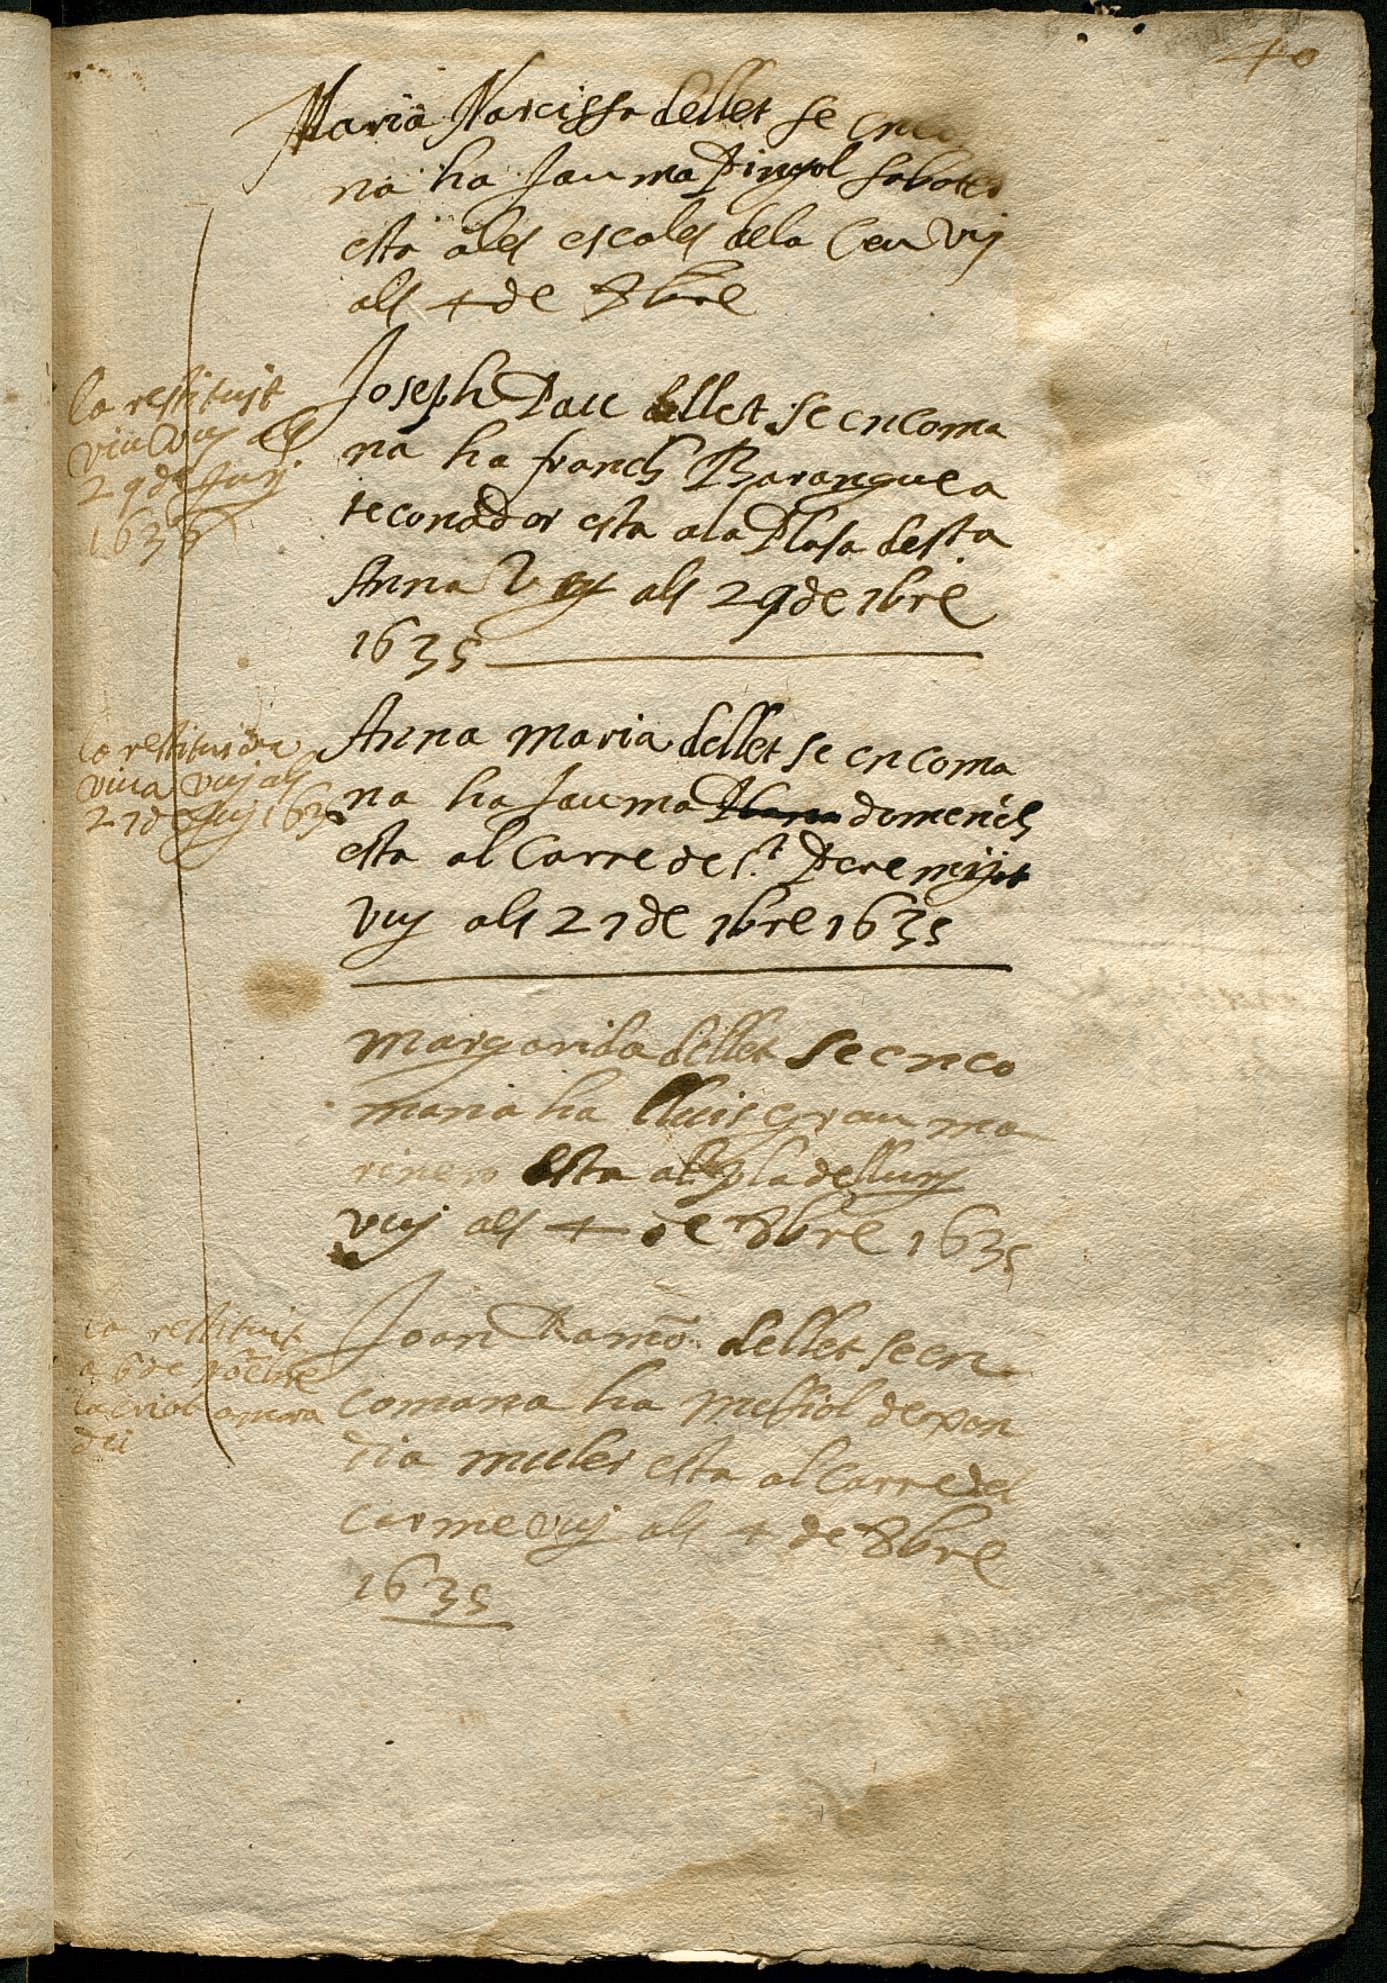 40
Maria Narcissa dellet se enco
na ha Jauma Pinyol sabater
esta ales escales dela Seu Vuy
als 4 de 8bre
la restituit
viu Vuy als
29 de Juny
1636
Joseph Pau dellet se encoma
na ha franch Baranguea
teconador esta ala Plasa de sta
Anna Vuy als 29 de 7bre
1635
la restituida
viua vuy als
27 de Juny 163
Anna maria dellet se encoma
na ha Jauma domenech
esta al Carre de st Pere mijat
Vuy als 27 de 7bre 1635
margarida dellet se enco
mana ha lluis grau ma
riner esta al pla de llury
vuy als 4 de 8bre 1635
la restituit
dei
Joan Ramō dellet se en
comana ha mestiol de pon
tia muler esta al carre del
carme vuy als 4 de 8bre
1635